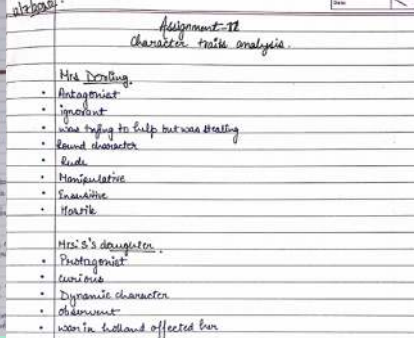 Date:
Assignment-II
Character traits analysis.
Mrs Dooling.
• Antagonist
• ignorant
• was trying to help but was stealing
• Round character
• Rude
• Manipulative
• Insensitive
• Hostile
Mrs. S's daughter.
• Protagonist
• curious
• Dynamic character
• observent
• war in holland affected her